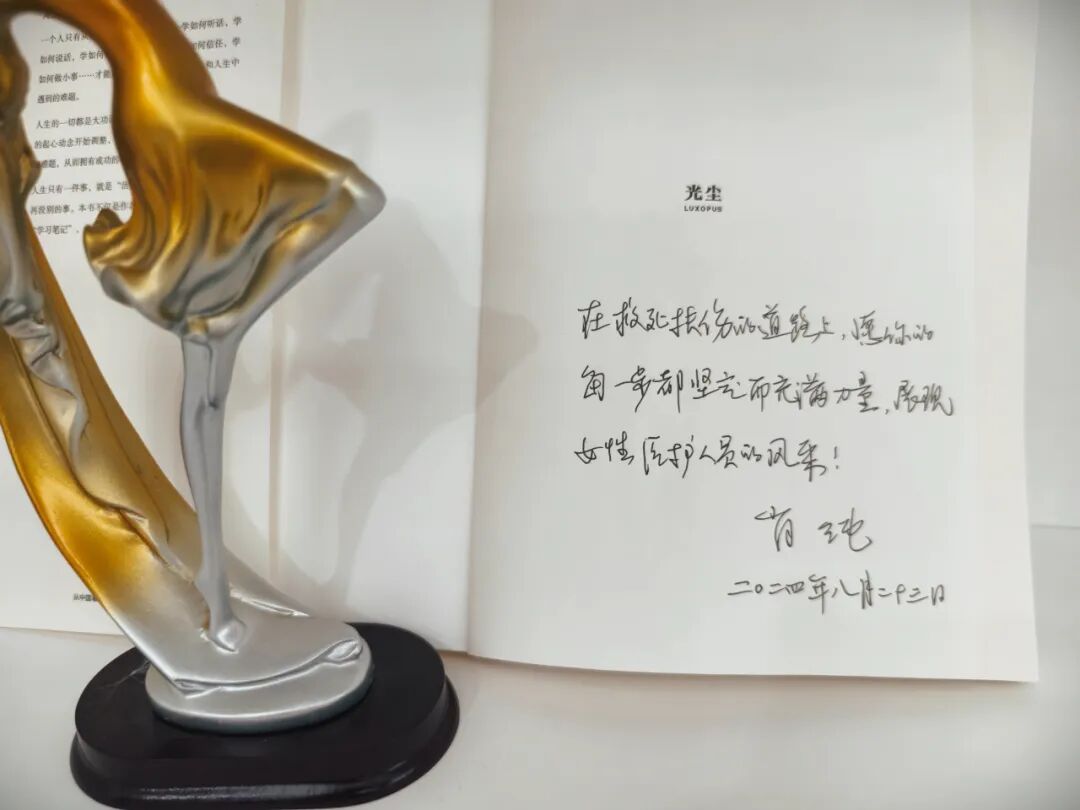 一个人只有从
学如何听话，学
如何说话，学如何
如何信任，学
如何做小事……才能
和人生中
遇到的难题。
人生的一切都是大功
的起心动念开始调整，
难题，从而拥有成功的
人生只有一件事，就是“活
再没别的事。本书不仅是作
“学习笔记”，
光尘
LUXOPUS
在救死扶伤的道路上，愿你的
每一步都坚定而充满力量，展现
女性医护人员的风采！
肖纯
二〇二四年八月二十三日